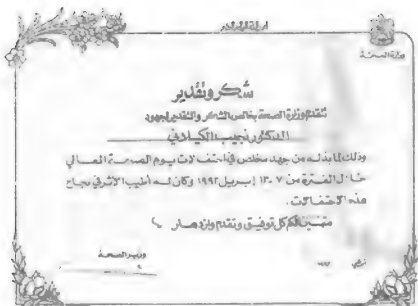 وزارة الصحة
شكر وتقدير
تتقدم وزارة الصحة بخالص الشكر والتقدير لجهود
الدكتور نجيب الكيلاني
وذلك لما بذله من جهد مخلص في احتفالات يوم الصحة العالمي
خلال الفترة من ٧-١٣ إبريل ١٩٩٢ وكان له أطيب الأثر في نجاح
هذه الاحتفالات.
متمنين لكم كل توفيق وتقدم وازدهار
وزير الصحة